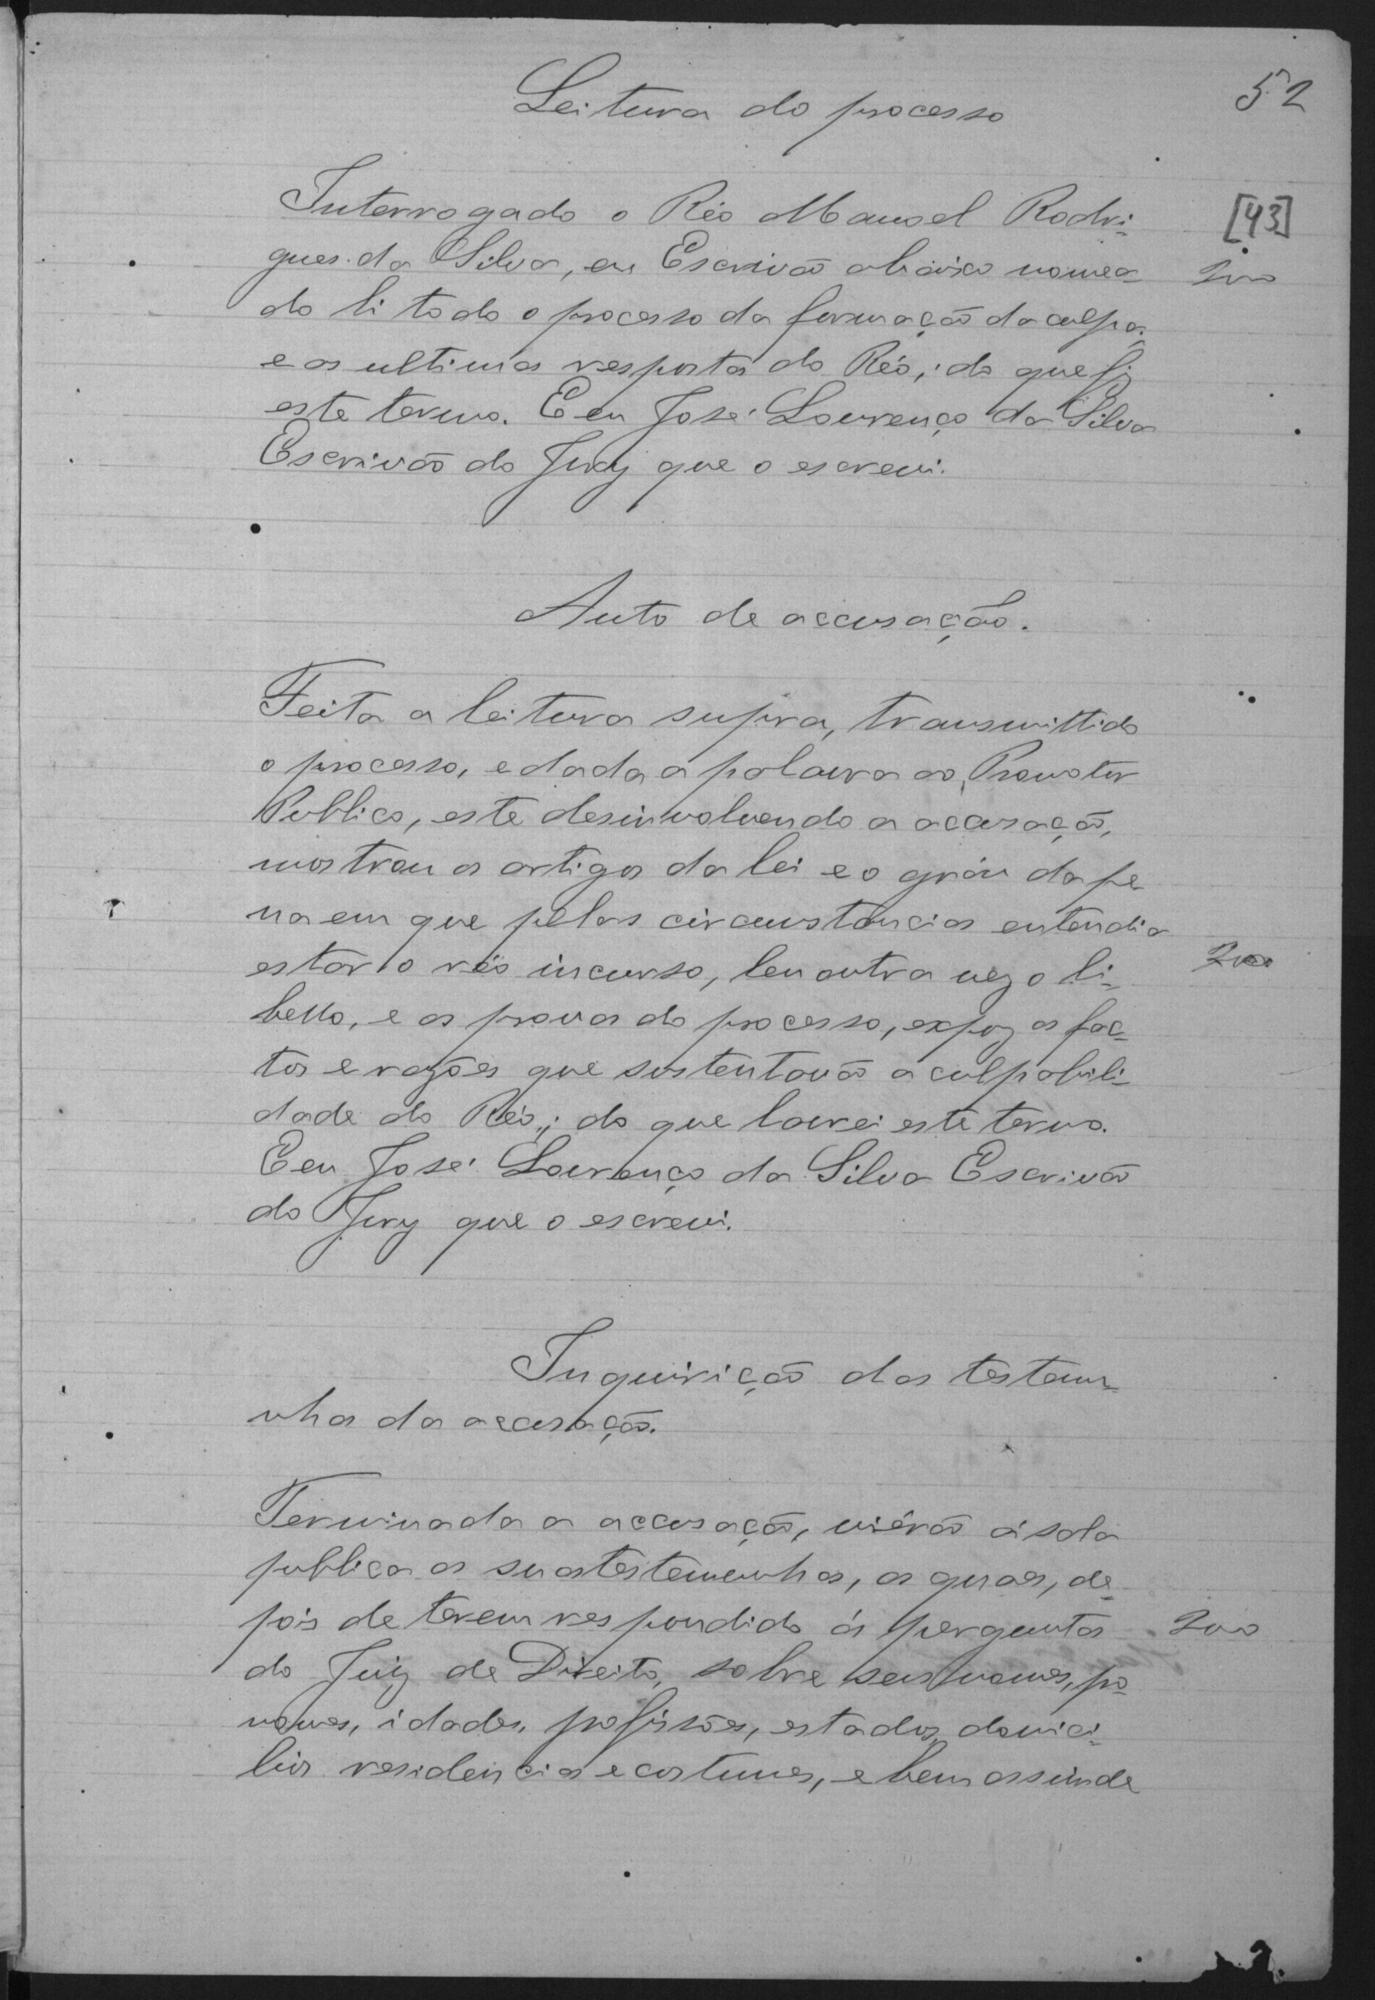 52
Leitura do processo
[43]
Interrogado o Réo Manoel Rodri-
gues da Silva, eu Escrivão abaixo nomea-
do li todo o processo da formação da culpa,
e as ultimas respostas do Réo; do que fiz
este termo. E eu José Lourenço da Silva
Escrivão do Jury que o escrevi.
Auto de accusação.
Feita a leitura supra, transmittido
o processo, e dada a palavra ao Promotor
Publico, este desinvolvendo a accusação,
mostrou os artigos da lei e o gráu da pe-
na em que pelas circumstancias entendia
estar o réo incurso, leu outra vez o li-
bello, e as provas do processo, expoz os fac-
tos e razões que sustentavão a culpabili-
dade do Réo; do que lavrei este termo.
E eu José Lourenço da Silva Escrivão
do Jury que o escrevi.
Inquirição das testem-
unhas da accusação.
Terminada a accusação, viérão á sala
publica as suas testemunhas, as quaes, de-
pois de terem respondido ás perguntas
do Juiz de Direito, sobre seus nomes, pro-
nomes, idades, profissões, estados, domici-
lios residencias e costumes, e bem assim de